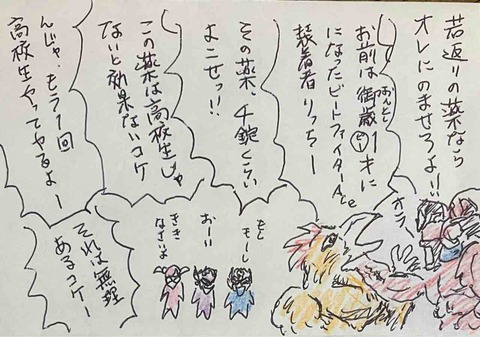 若返りの薬なら
オレにのませろよー!!
オラ
お前は御歳
おんとし
1才に
になったビートファイターAce
装着者りっちー
その薬、千錠くらい
よこせっ!!
この薬は高校生じゃ
ないと効果ないコケ
んじゃ、もう1回
高校生やってやるよー
もし
もーし
おーい
きき
なさいよ
それは無理
あるコケー